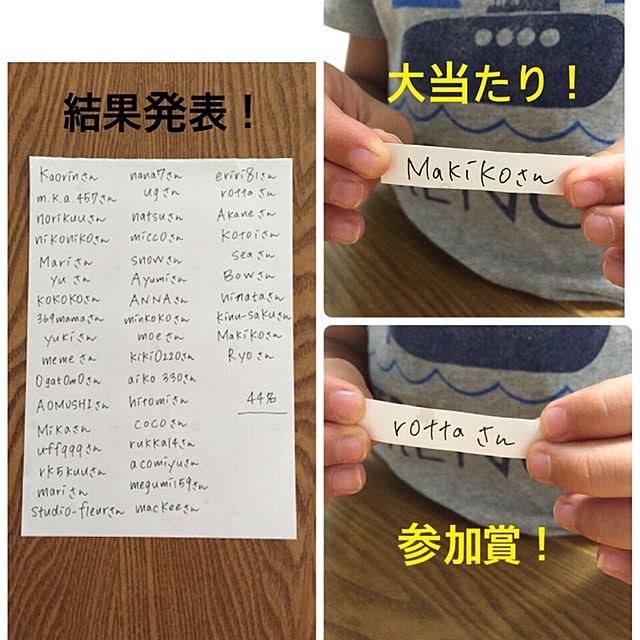 結果発表！
Kaorinさん
m.k.a.457さん
norikuuさん
nikonikoさん
Mariさん
yuさん
KOKOKOさん
369mamaさん
yukiさん
memeさん
OgatOmOさん
AOMUSHIさん
Mikaさん
uffqqqさん
rk5kuuさん
mariさん
studio-fleurさん
nana7さん
ugさん
natsuさん
miccoさん
snowさん
Ayumiさん
ANNAさん
minkokoさん
moeさん
kiki0220さん
aiko 330さん
hitomiさん
cocoさん
rukka14さん
acomiyuさん
megumi159さん
macKeeさん
eriri81さん
rottaさん
Akaneさん
Kotoiさん
seaさん
Bowさん
hinataさん
kinu-sakuさん
Makikoさん
Ryoさん
44名
大当たり！
Makikoさん
rottaさん
参加賞！